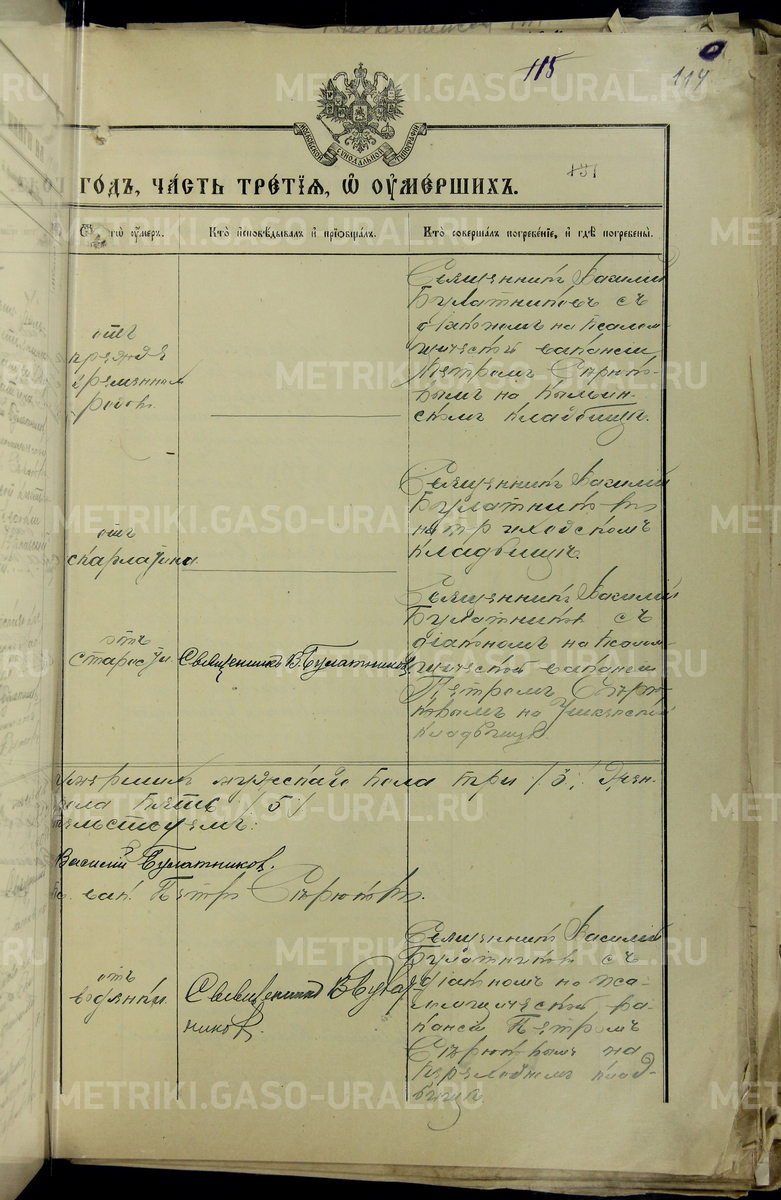 115
114
МОСКОВСКОЙ СѴНОДАЛЬНОЙ ТИПОГРАФІИ
131
ГОДЪ, ЧАСТЬ ТРЕТІЯ, Ѡ ОУМЕРШИХЪ.
ѿ чегѡ оумеръ.
Кто исповѣдывалъ и пріобщалъ.
Кто совершалъ погребеніе, и гдѣ погребены.
отъ
преждев
временныхъ
родовъ.
Священникъ Василій
Булатниковъ съ
діакономъ на псалом
щической вакансіи
Петромъ
на
кладбищѣ.
отъ
скарлатина.
Священникъ Василій
Булатниковъ
на приходскомъ
кладбищѣ.
отъ
старости
Священникъ В. Булатниковъ
Священникъ Василій
Булатниковъ съ
діакономъ на псалом
щической вакансіи
Петромъ
на
кладбищѣ.
умершихъ мужскаго пола три /3/. Жен.
пола пять /5/
Василій Булатниковъ.
вак. Петръ
отъ
водянки.
Священникъ В. Булат-
никовъ.
Священникъ Василій
Булатниковъ съ
діакономъ на пса-
ломщической ва-
кансіи Петромъ
на
клад-
бищѣ
METRIKI.GASO-URAL.RU